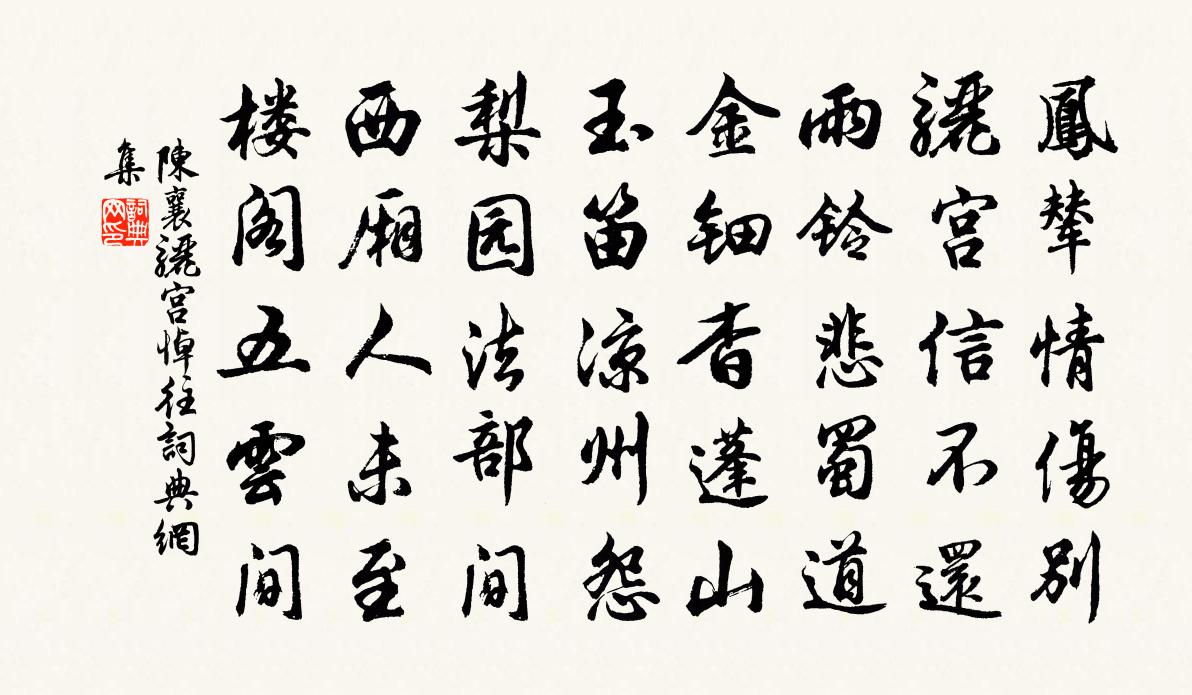 鳳輦情傷別
驪宮信不還
雨鈴悲蜀道
金鈿杳蓬山
玉笛凉州怨
梨园法部間
西廂人未至
楼阁五雲間
陳襄驪宮悼往詞典網
集
詞典网印